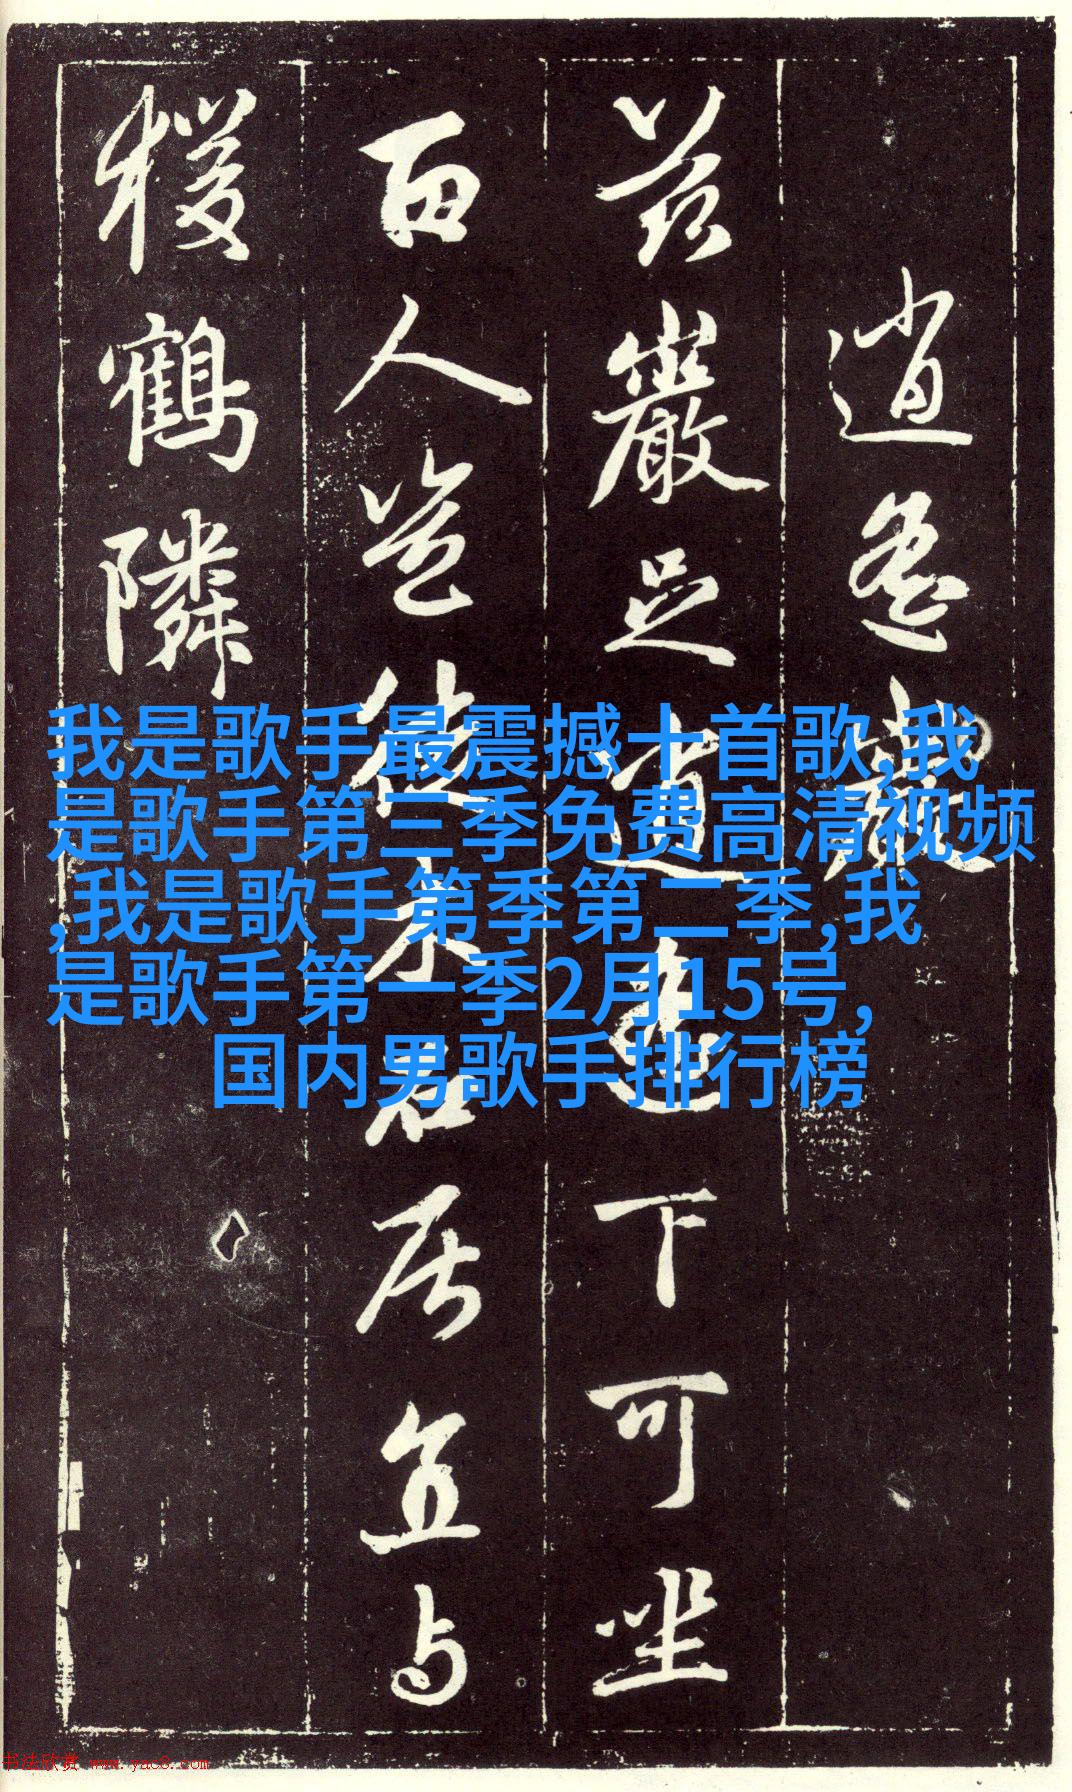 逍遥巖
茲巖足逍遥下可坐
百人豈徒木石居宜与
猨鶴隣
我是歌手最震撼十首歌,我
是歌手第三季免费高清视频
,我是歌手第季第二季,我
是歌手第一季2月15号,
国内男歌手排行榜
书法欣赏 www.yac8.com